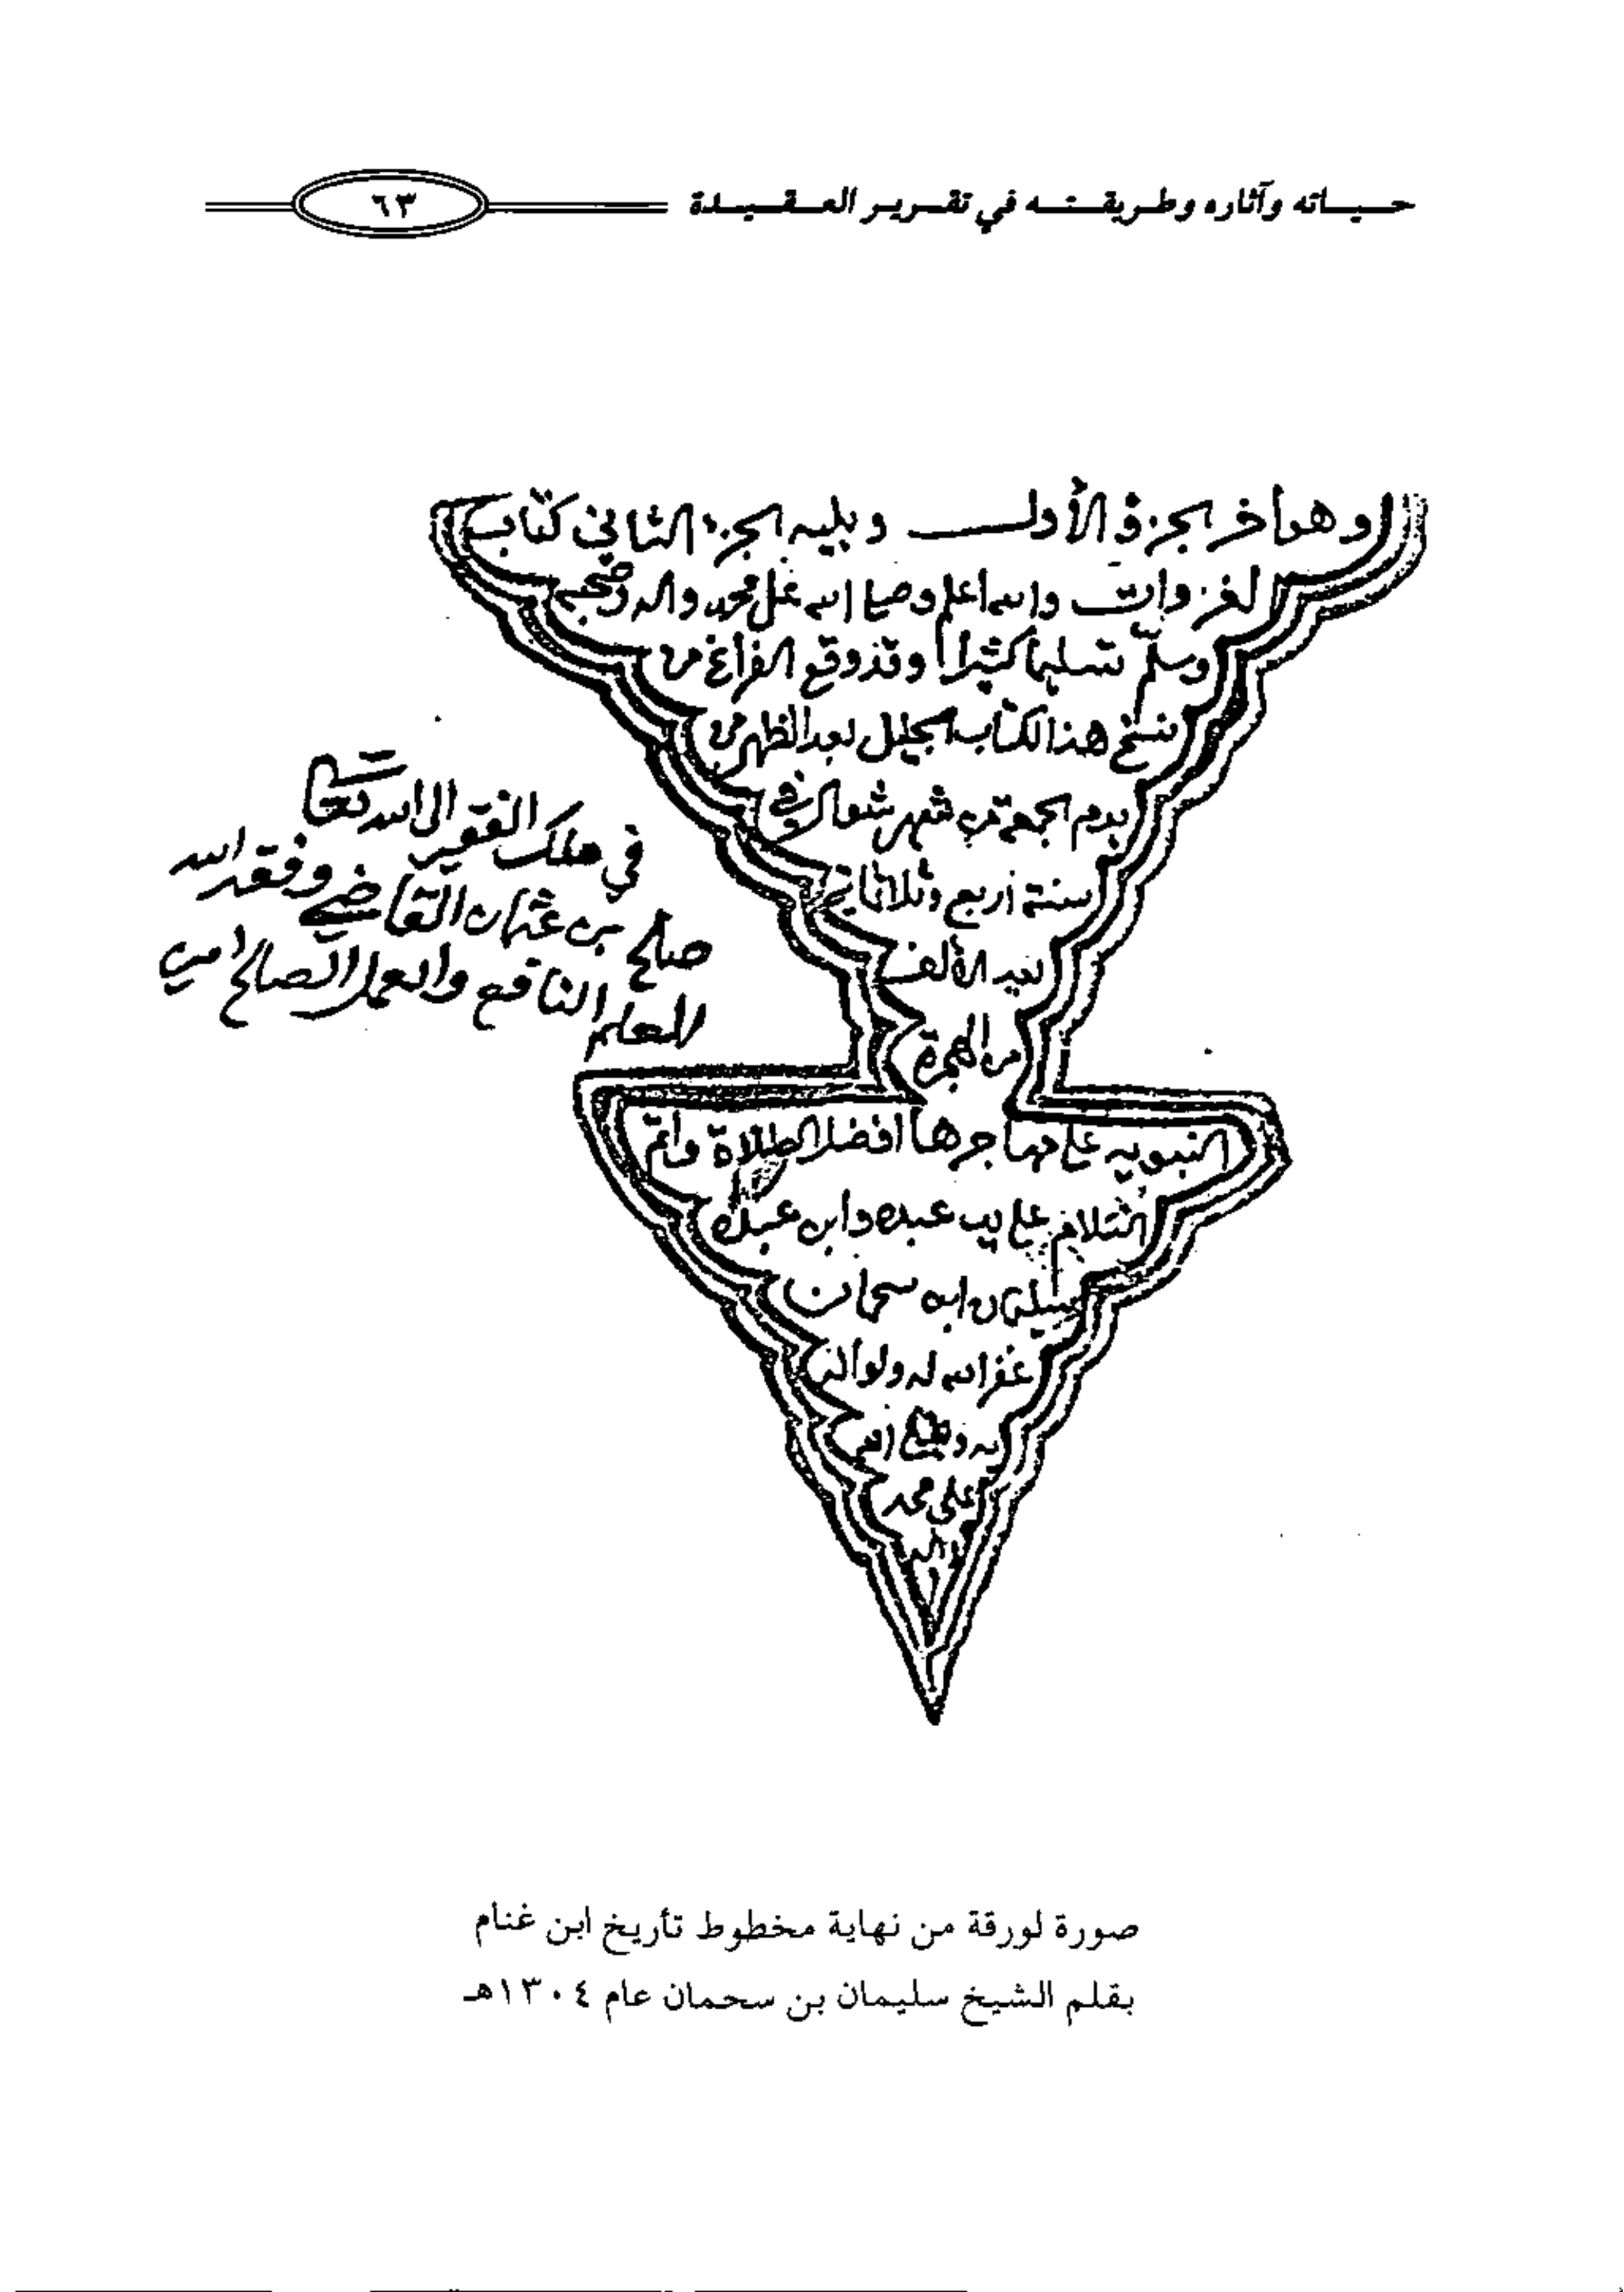 حياته وآثاره وطريقته في تقرير العقيدة
٦٣
وهو آخر الجزؤ الأول ويليه الجزء الثاني كتاب
الغزوات والله اعلم وصلى الله على محمد واله وصحبه
وسلم تسليما كثيرا وقد وقع الفراغ من
نسخ هذا الكتاب الجليل بعد الظهر من
يوم الجمعة من شهر شوال في
سنة اربع وثلاثماية
بعد الألف
من الهجرة
النبويه على مهاجرها افضل الصلاة واتم
السلام على يد عبده وابن عبده
سليمان ابن سحمان
غفر الله له ولوالد
يه وصلى الله
على محمد
واله
في ملك الفقير الى الله تعالى
صالح بن عثمان القاضي وفقه الله
للعلم النافع والعمل الصالح امين
صورة لورقة من نهاية مخطوط تأريخ ابن غنام
بقلم الشيخ سليمان بن سحمان عام ١٣٠٤هـ